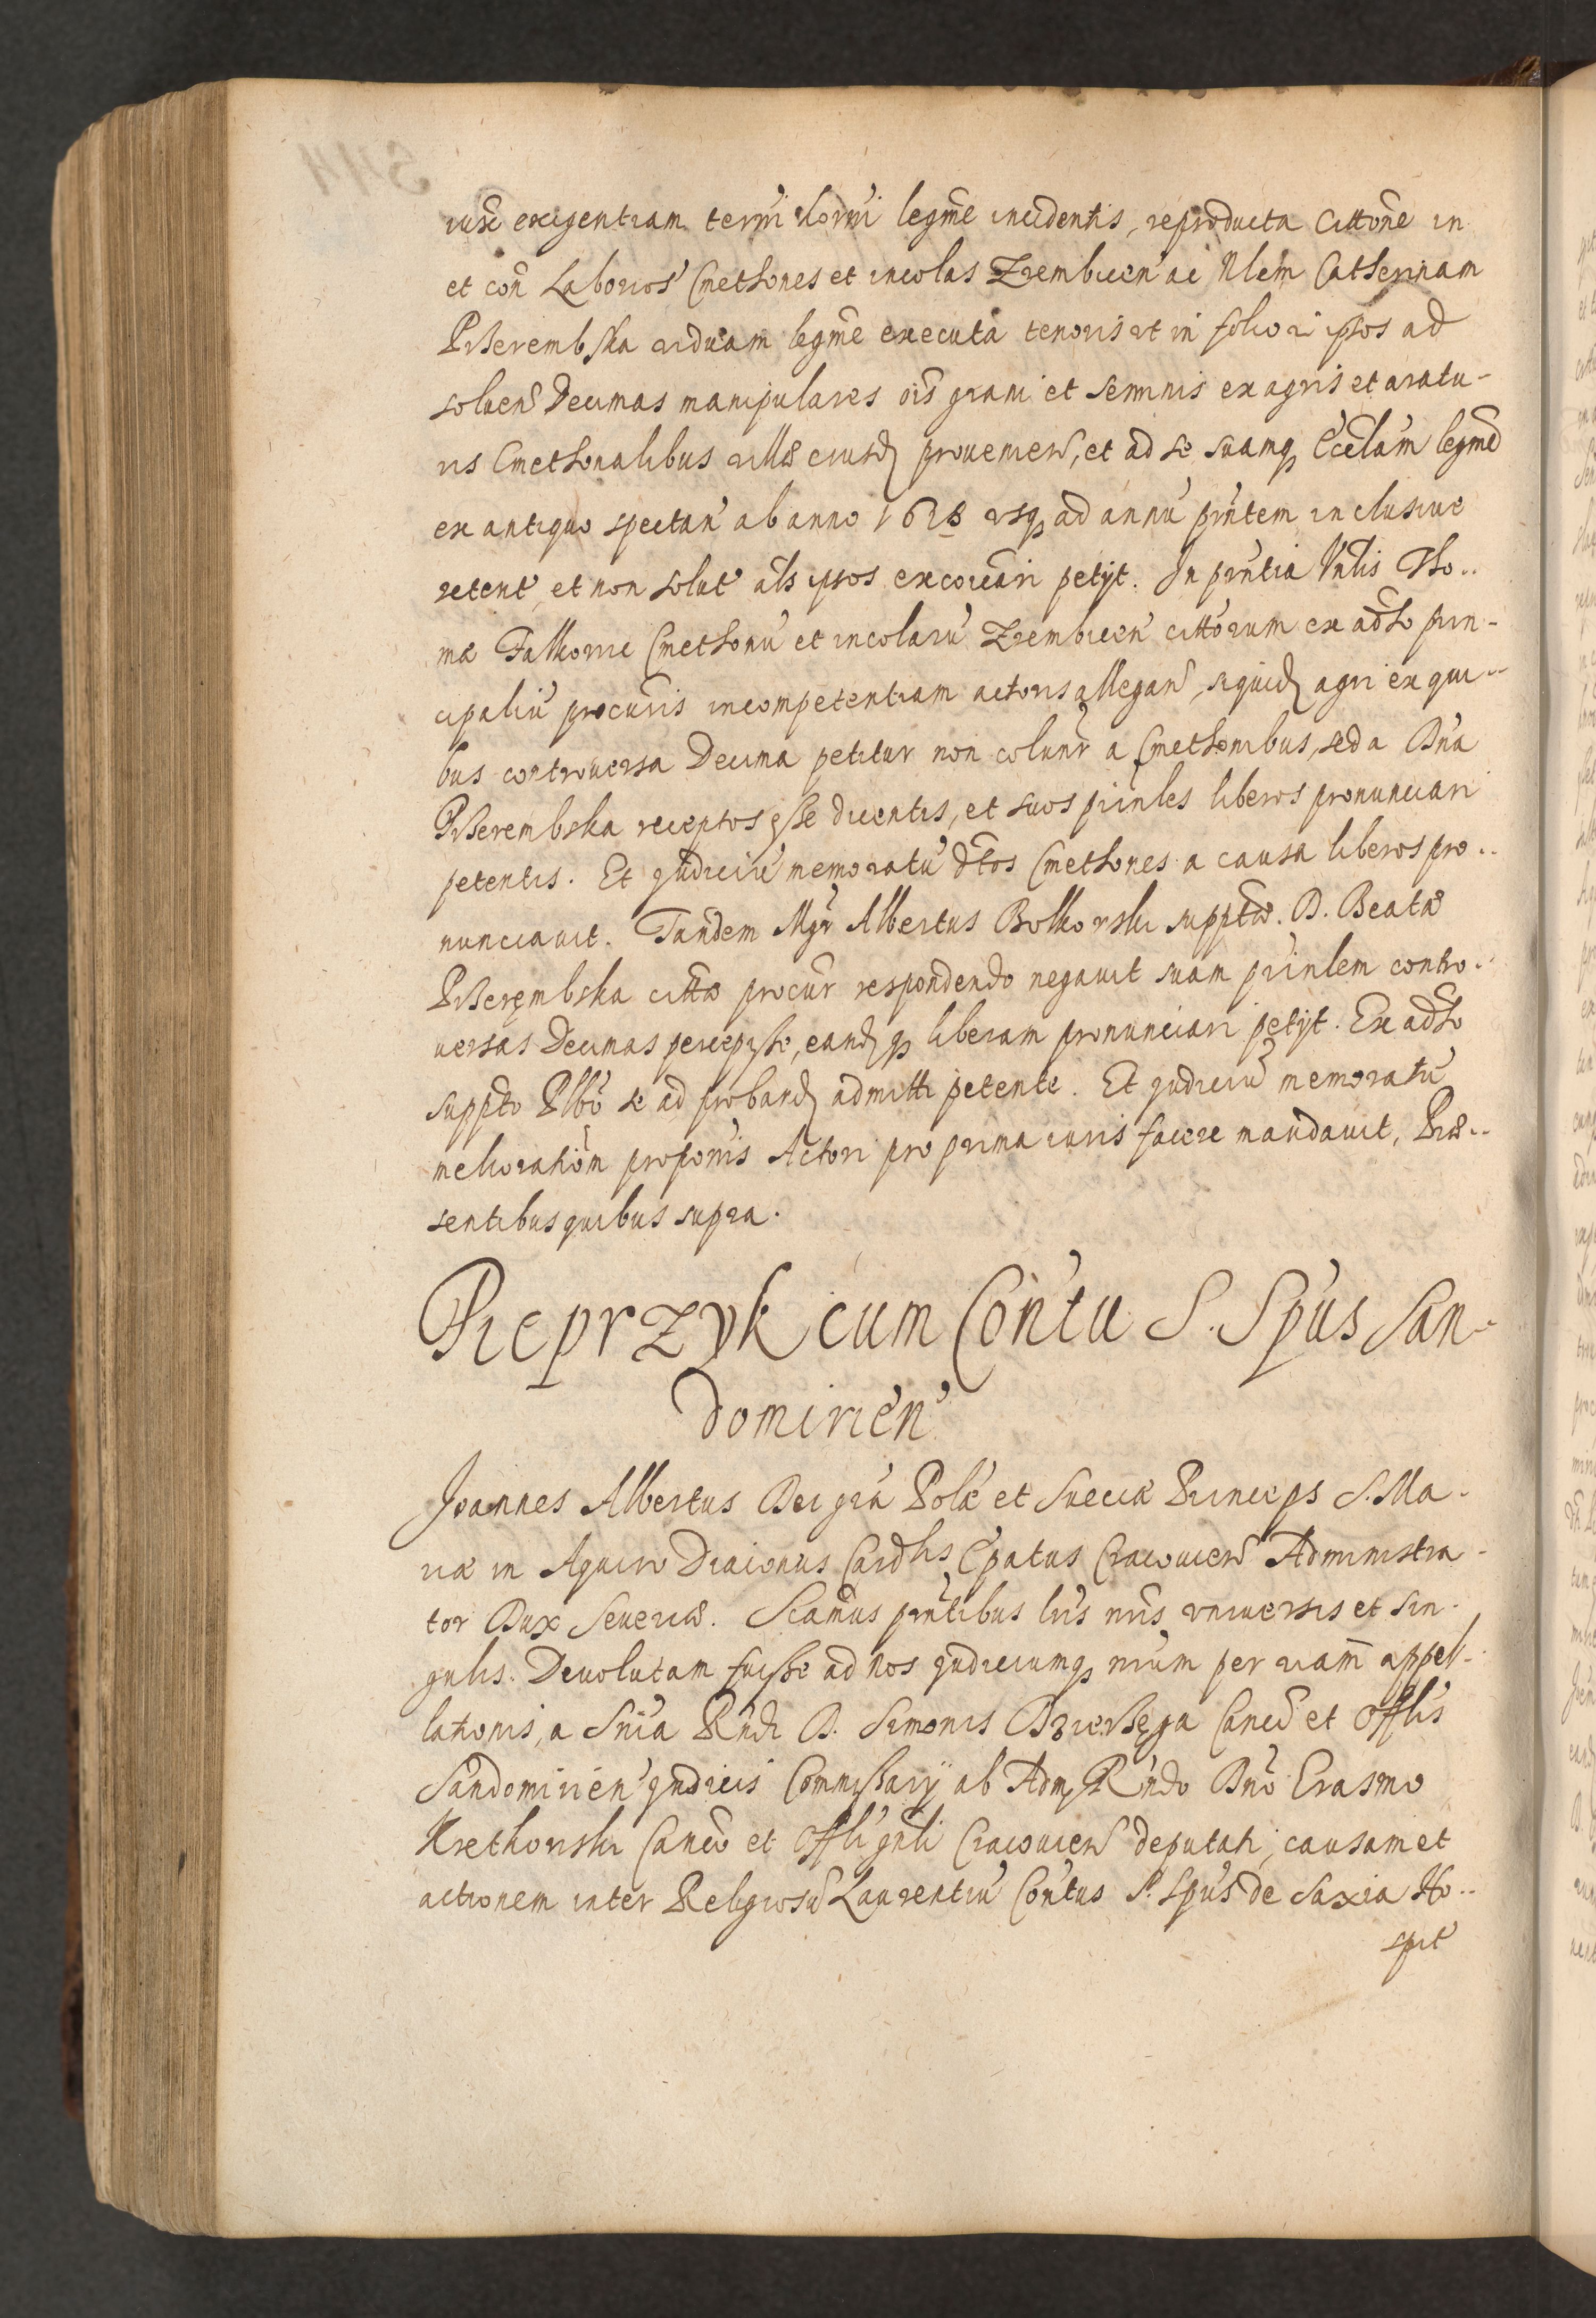 iuxē exigentiam term̄i horm̄i legm̄e incidentis, reproducta cittōne in
et con̄ Laborios' Cmethones et incolas Zrembicen' ac Nlem Catherinam
Przerembska viduam legm̄e executa tenoris ut in folio ipsos ad
soluen̄ Decimas manipulares oīs grani et seminis ex agris et aratu-
ris Cmethonalibus villæ eiusdꝫ prouenien̄, et ad se suamqꝫ Ecclam legm̄e
ex antiquo spectan' ab anno 1628 vsqꝫ ad annū pn̄tem inclusiue
retent' et non solut' al̄s ipsos excoīcari petijt. In pn̄tia Vnlis Tho..
mæ Falkowic Cmethonū et incolarū Zrembicen' cittōrum ex adūso prin-
cipaliū procūris incompetentiam actoris allegan̄, siquidꝫ agri ex qui..
bus controuersa Decima petitur non colunt̄r a Cmethonibus, sed a Dn̄a
Przerembska receptos esse dicentis, et suos prin̄les liberos pronunciari
petentis. Et Judiciū memoratū dtōs Cmethones a causa liberos pro..
nunciauit. Tandem Mgr̄ Albertus Bolkowski supptæ. D. Beatæ
Przerembska cittæ procūr respondendo negauit suam prin̄lem contro..
uersas Decimas percepisse, eandꝫqꝫ liberam pronunciari petijt. Ex adūso
suppto Plbō se ad probandꝫ admitti petente. Et Judiciū memoratū
meliorationem̄ propon̄is Actori pro prima iuris facere mandauit, Præ..
sentibus quibus supra.
Pieprzyk cum Con̄tu S. Spūs San-
domirien'
Joannes Albertus Dei gr̄a Polæ et Sueciæ Princeps S. Ma-
riæ in Aquiro Diaconus Cardlis Epatus Cracouien̄ Administra-
tor Dux Seueriæ. Sciamus pn̄tibus lr̄is nr̄is vniuersis et sin-
gulis. Deuolutam fuisse ad nos Judiciumqꝫ nr̄um per viam̄ appel-
lationis, a Sn̄ia Rn̄di D. Simonis Canci et Offlis
Sandomirien' Judicis Commissarij ab Admꝫ Rn̄do Dn̄o Erasmo
Kretkowski Canco et Offli gn̄li Cracouien̄ deputati, causam et
actionem inter Religiosū Laurentiū Con̄tus S. Spūs de Saxia Ho..
spit'